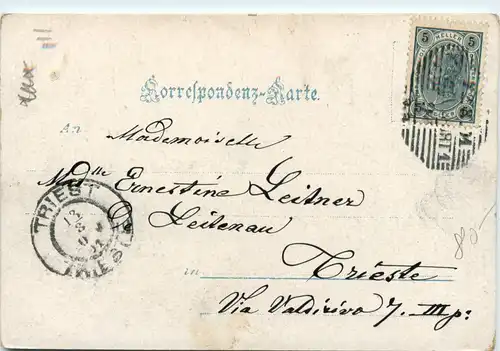 5 HELLER 5
Korrespondenz-Karte.
An Mademoiselle
Mlle Ernestine Leitner
Leitenau
TRIEST
TRIESTE
in Trieste
Via Valdirivo 7. III p:
80-